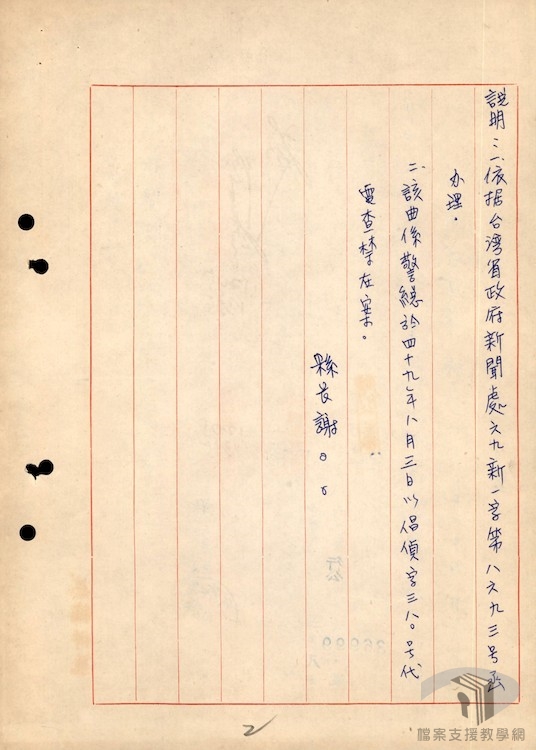 說明：一、依据台湾省政府新聞處六九新一字第八六九三号函
办理。
二、該曲係警總於四十九年八月三日以倡偵字三八〇号代
電查禁在案。
縣長謝○○
2
檔案支援教學網